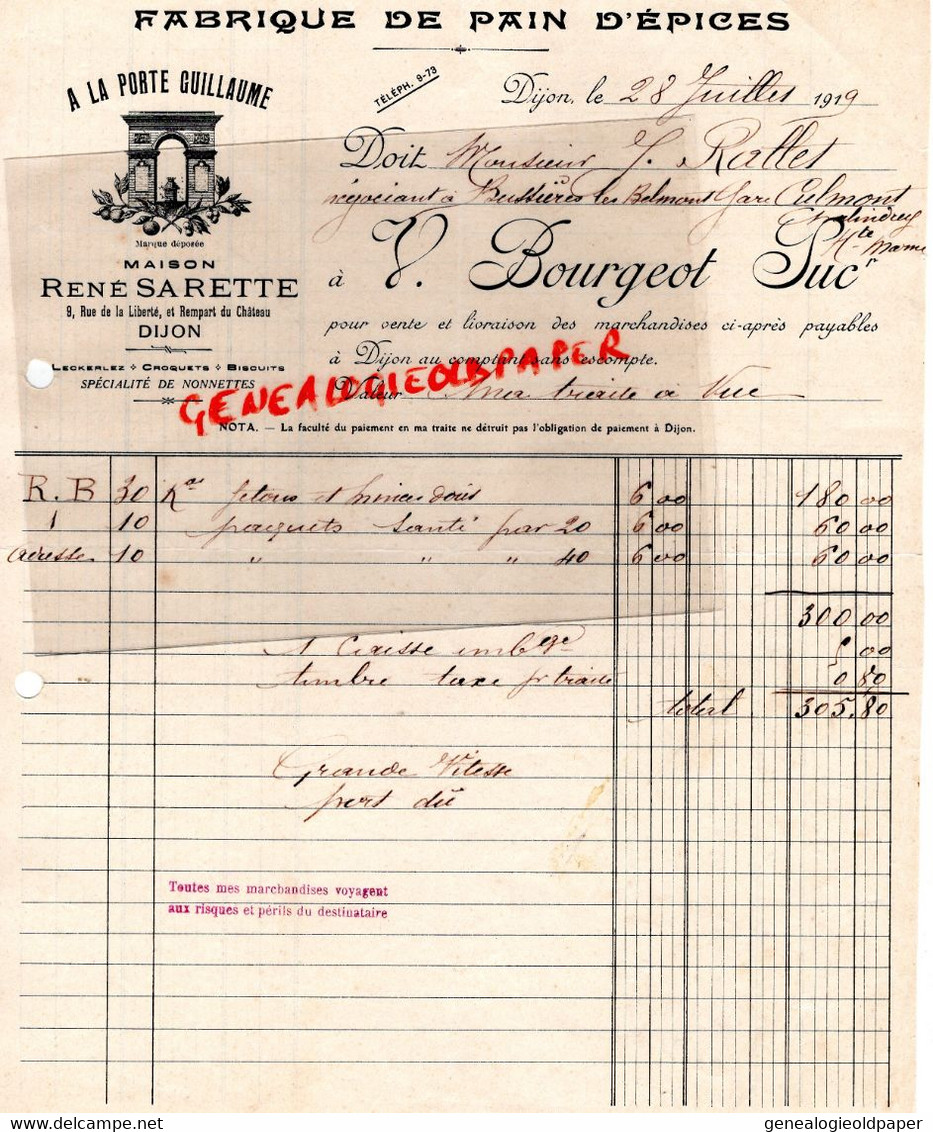 FABRIQUE DE PAIN D'ÉPICES
A LA PORTE GUILLAUME
Marque déposée
MAISON
RENÉ SARETTE
9, Rue de la Liberté, et Rempart du Château
DIJON
LECKERLEZ + CROQUETS + BISCUITS
SPÉCIALITÉ DE NONNETTES
TÉLÉPH. 9-73
Dijon, le 28 Juillet 1919
Doit Monsieur J. Rallet
négociant à Bussières les Belmont Gare Culmont
Chalindrey
Hte Marne
à V. Bourgeot Sucr
pour vente et livraison des marchandises ci-après payables
à Dijon au comptant sans escompte.
Valeur ma traite à Vue
GENEALOGIEOLDPAPER
NOTA. — La faculté du paiement en ma traite ne détruit pas l'obligation de paiement à Dijon.
R. B 30 Kos et 6 00 180 00
1 10 paquets Santé par 20 6 00 60 00
adresse 10 " " " 40 6 00 60 00
300 00
1 Caisse embge 5 00
timbre taxe pr traite 0 80
total 305.80
Grande Vitesse
port dû
Toutes mes marchandises voyagent
aux risques et périls du destinataire
delcampe.net
genealogieoldpaper